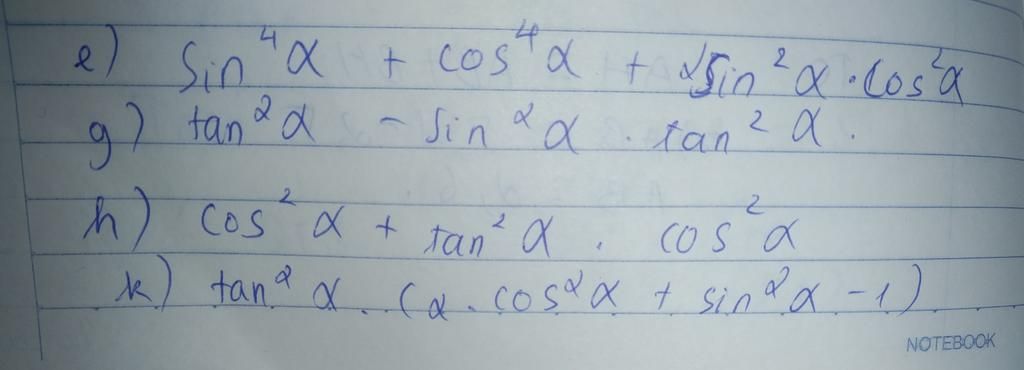 e) sin⁴α + cos⁴α + 2sin²α·cos²α
g) tan²α - sin²α . tan²α.
h) cos²α + tan²α . cos²α
k) tan²α . (2.cos²α + sin²α - 1)
NOTEBOOK